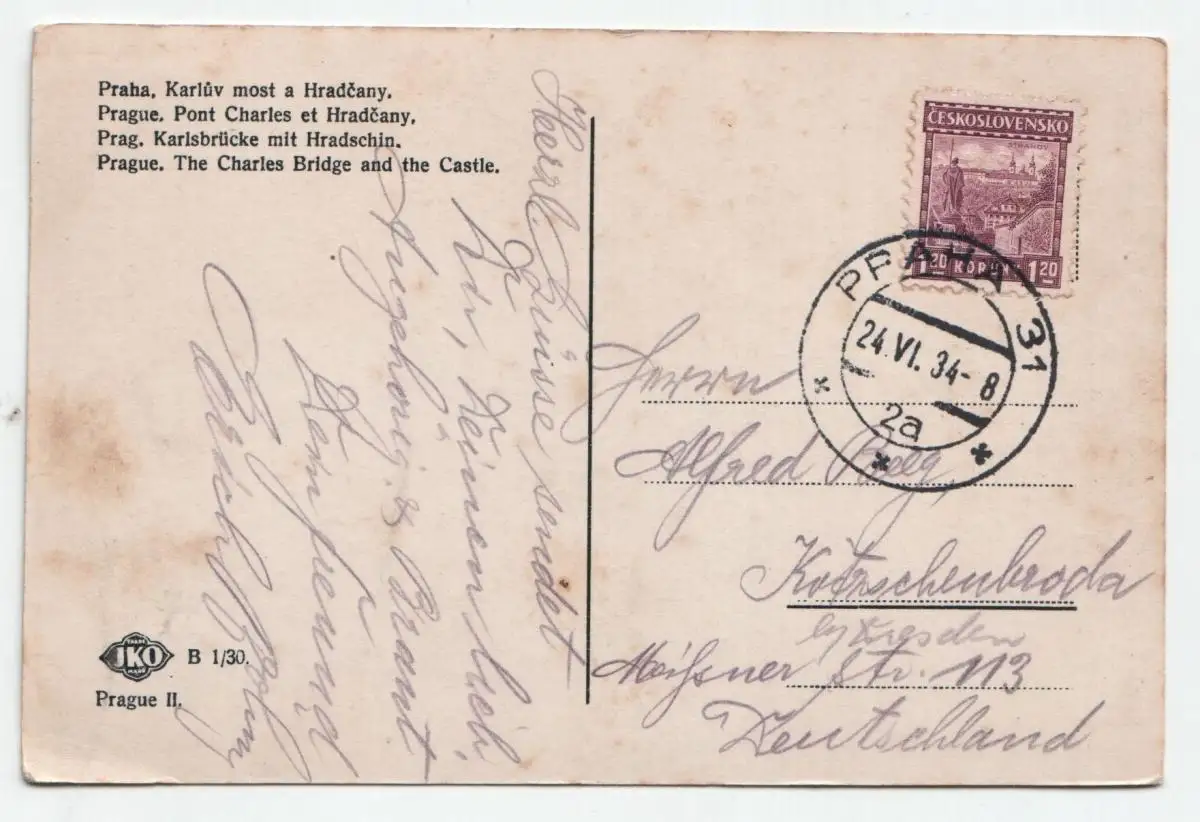 Praha, Karlův most a Hradčany.
Prague. Pont Charles et Hradčany.
Prag. Karlsbrücke mit Hradschin.
Prague. The Charles Bridge and the Castle.
Herzl. Grüsse sendet
Dir, Deinen lieb.
Angehörig. & Braut
Dein Freund
Erich
TRADE
JKO
MARK
B 1/30.
Prague II.
ČESKOSLOVENSKO
STRAHOV
1 20 KORUN 1 20
PRAHA 31
24. VI. 34 - 8
2a
Herrn
Alfred
Kötzschenbroda
b/Dresden
Meißner Str. 113
Deutschland